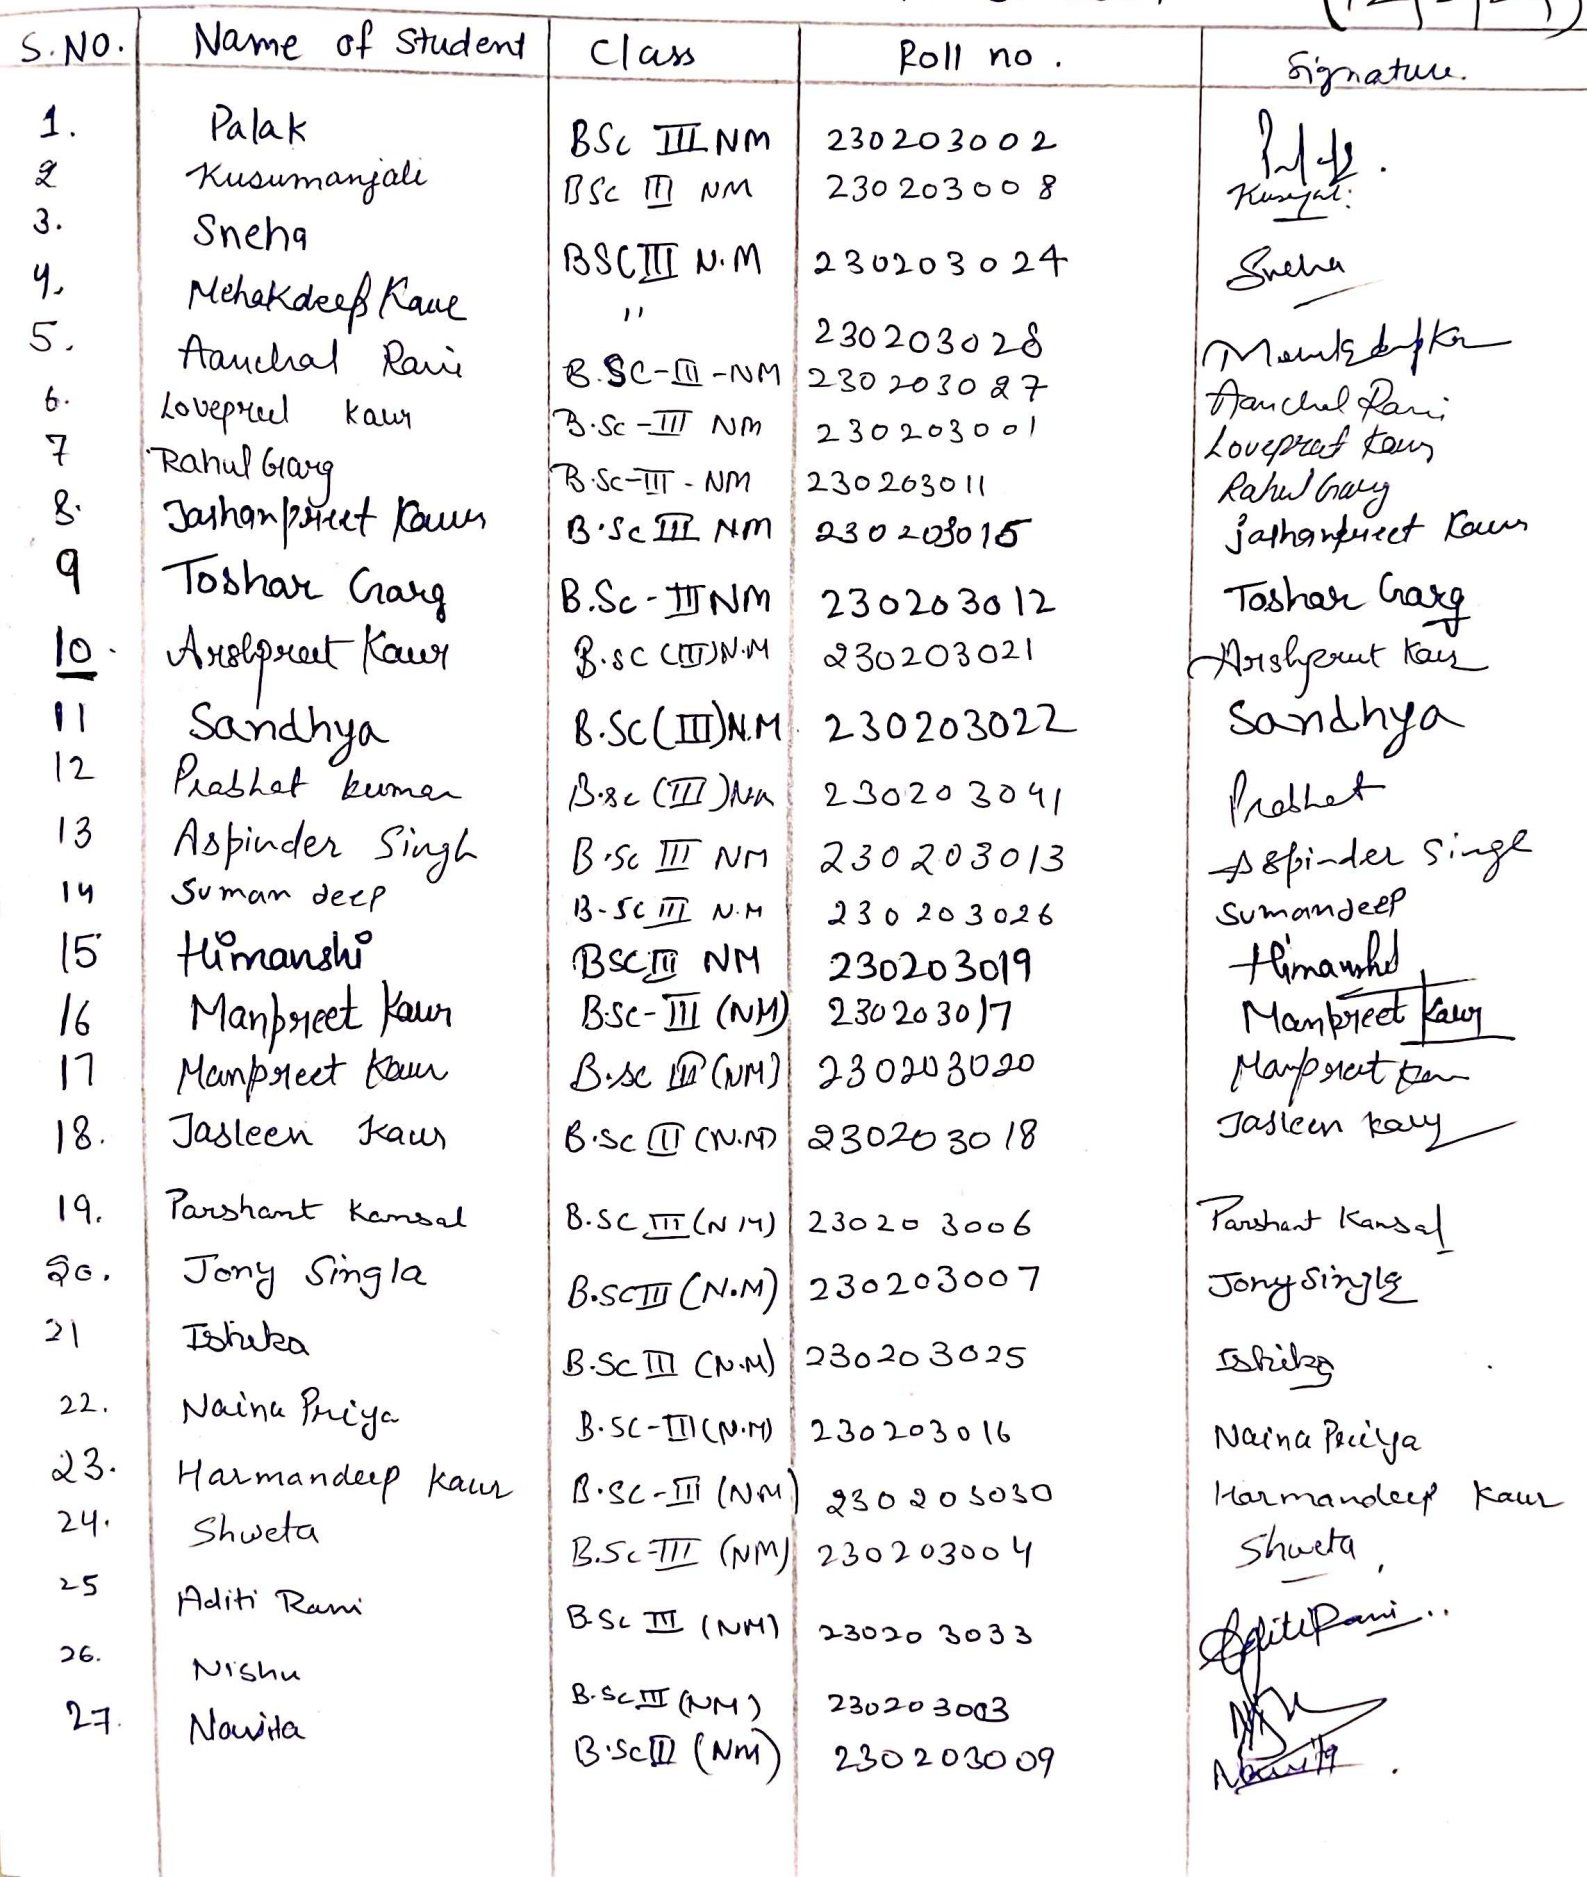 S.NO. Name of Student Class Roll no. Signature.
1. Palak BSc III NM 230203002
2 Kusumanjali BSc III NM 230203008
3. Sneha BSC III N.M 230203024 Sneha
4. Mehakdeep Kaur " 230203028
5. Aanchal Rani B.SC-III-NM 230203027 Aanchal Rani
6. Lovepreet kaur B.Sc-III NM 230203001 Lovepreet Kaur
7 Rahul Garg B.Sc-III-NM 230203011 Rahul Garg
8. Jashanpreet Kaur B.Sc III NM 230203015 jashanpreet Kaur
9 Toshar Garg B.Sc-III NM 230203012 Toshar Garg
10. Arshpreet Kaur B.SC (III) N.M 230203021 Arshpreet Kaur
11 Sandhya B.SC (III) N.M. 230203022 Sandhya
12 Prabhat kumar B.sc (III) 230203041 Prabhat
13 Aspinder Singh B.Sc III NM 230203013 Aspinder Singh
14 Suman deep B-SC III N.M 230203026 Sumandeep
15 Himanshi BSC III NM 230203019 Himanshi
16 Manpreet Kaur B.Sc-III (NM) 230203017 Manpreet Kaur
17 Manpreet Kaur B.Sc III (NM) 230203020 Manpreet Kaur
18. Jasleen Kaur B.SC III (N.M) 230203018 Jasleen Kaur
19. Parshant Kansal B.SC III (NM) 230203006 Parshant Kansal
20. Jony Singla B.SC III (N.M) 230203007 Jony Singla
21 Ishika B.SC III (N.M) 230203025 Ishika
22. Naina Priya B.SC-III (N.M) 230203016 Naina Priya
23. Harmandeep Kaur B.SC-III (NM) 230203030 Harmandeep Kaur
24. Shweta B.Sc-III (NM) 230203004 Shweta
25 Aditi Rani B.Sc III (NM) 230203033 Aditi Rani
26. Nishu B.Sc III (NM) 230203003
27. Navita B.Sc III (NM) 230203009 Navita